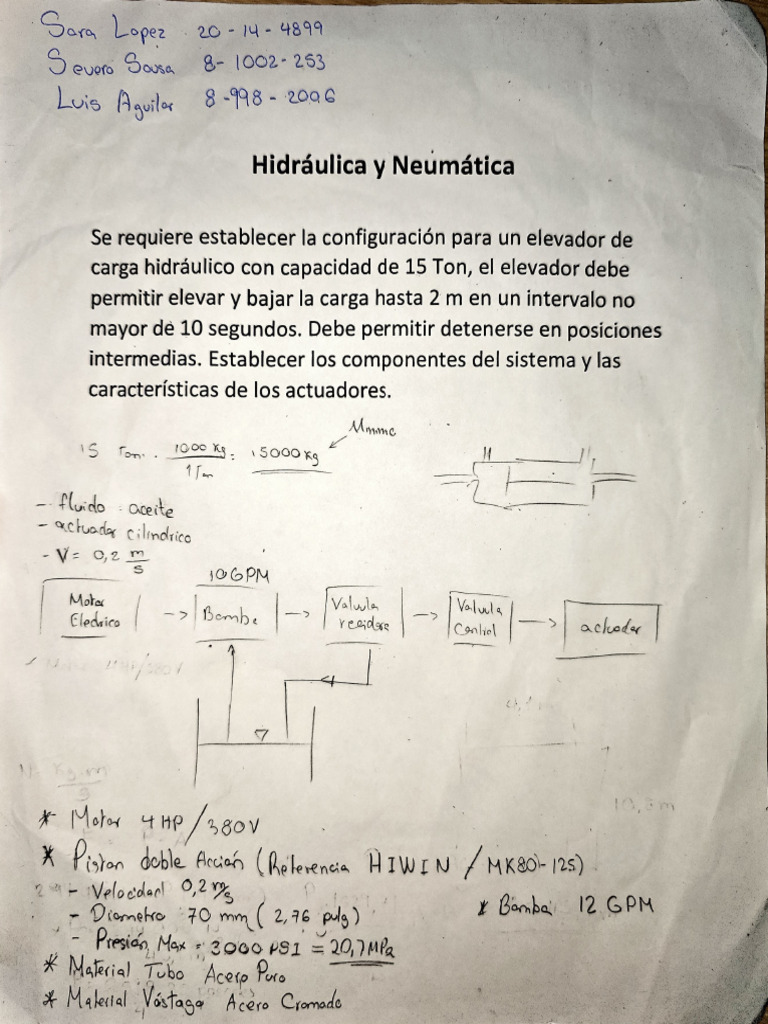 Sara Lopez 20-14-4899
Severo Sousa 8-1002-253
Luis Aguilar 8-998-2006
Hidráulica y Neumática
Se requiere establecer la configuración para un elevador de
carga hidráulico con capacidad de 15 Ton, el elevador debe
permitir elevar y bajar la carga hasta 2 m en un intervalo no
mayor de 10 segundos. Debe permitir detenerse en posiciones
intermedias. Establecer los componentes del sistema y las
características de los actuadores.
15 Ton. 1000 Kg / 1 Ton = 15000 Kg
- fluido aceite
- actuador cilindrico
- V = 0,2 m/s
10 GPM
Motor Electrico
Bomba
Valvula
Valvula Control
actuador
* Motor 4 HP/380V
* Piston doble Acción (Referencia HIWIN / MK80-125)
- Velocidad 0,2 m/s
- Diametro 70 mm (2,76 pulg)
* Bomba 12 GPM
- Presión Max = 3000 PSI = 20,7 MPa
* Material Tubo Acero Puro
* Material Vástago Acero Cromado